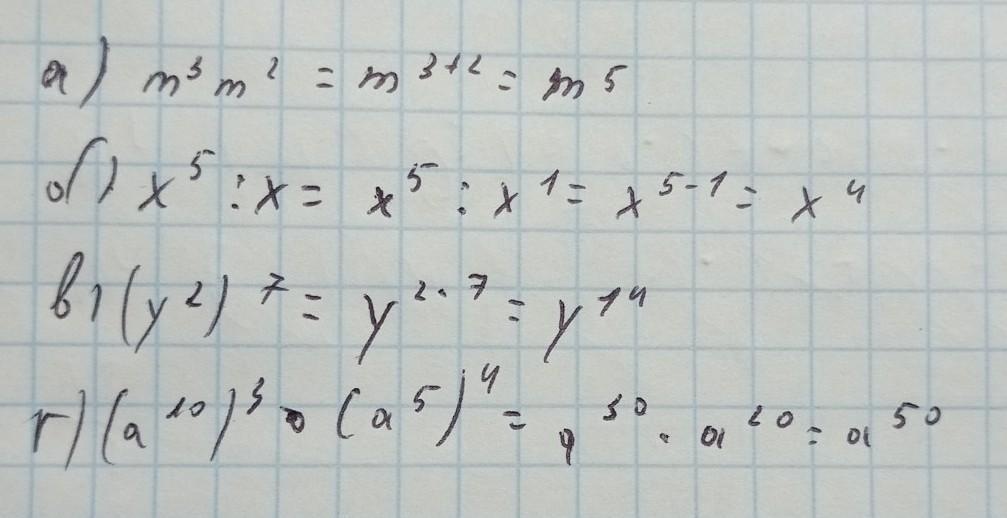 а) m³ m² = m³⁺² = m⁵
б) x⁵ : x = x⁵ : x¹ = x⁵⁻¹ = x⁴
в) (y²)⁷ = y²˙⁷ = y¹⁴
г) (a¹⁰)³ · (a⁵)⁴ = a³⁰ · a²⁰ = a⁵⁰